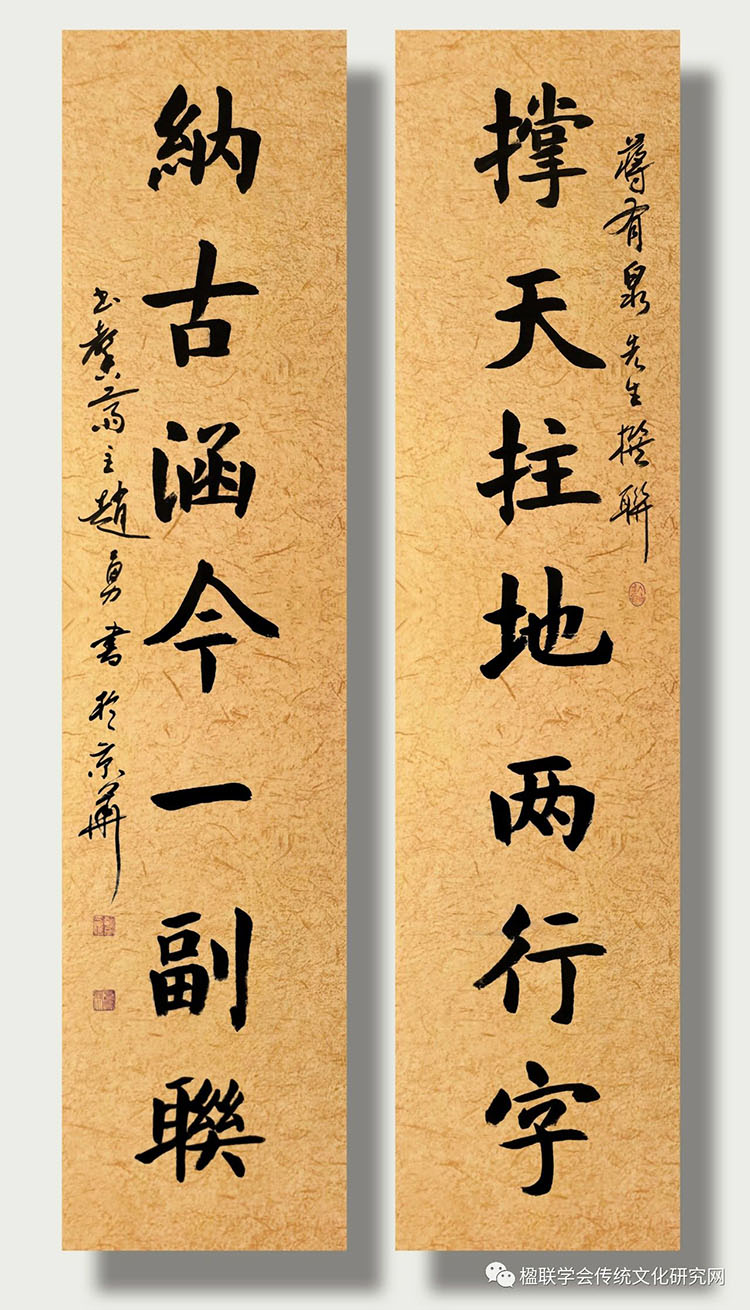 蔣有泉先生撰聯
撑天拄地两行字
納古涵今一副聯
书馨齋主趙勇書於京華
楹联学会传统文化研究网